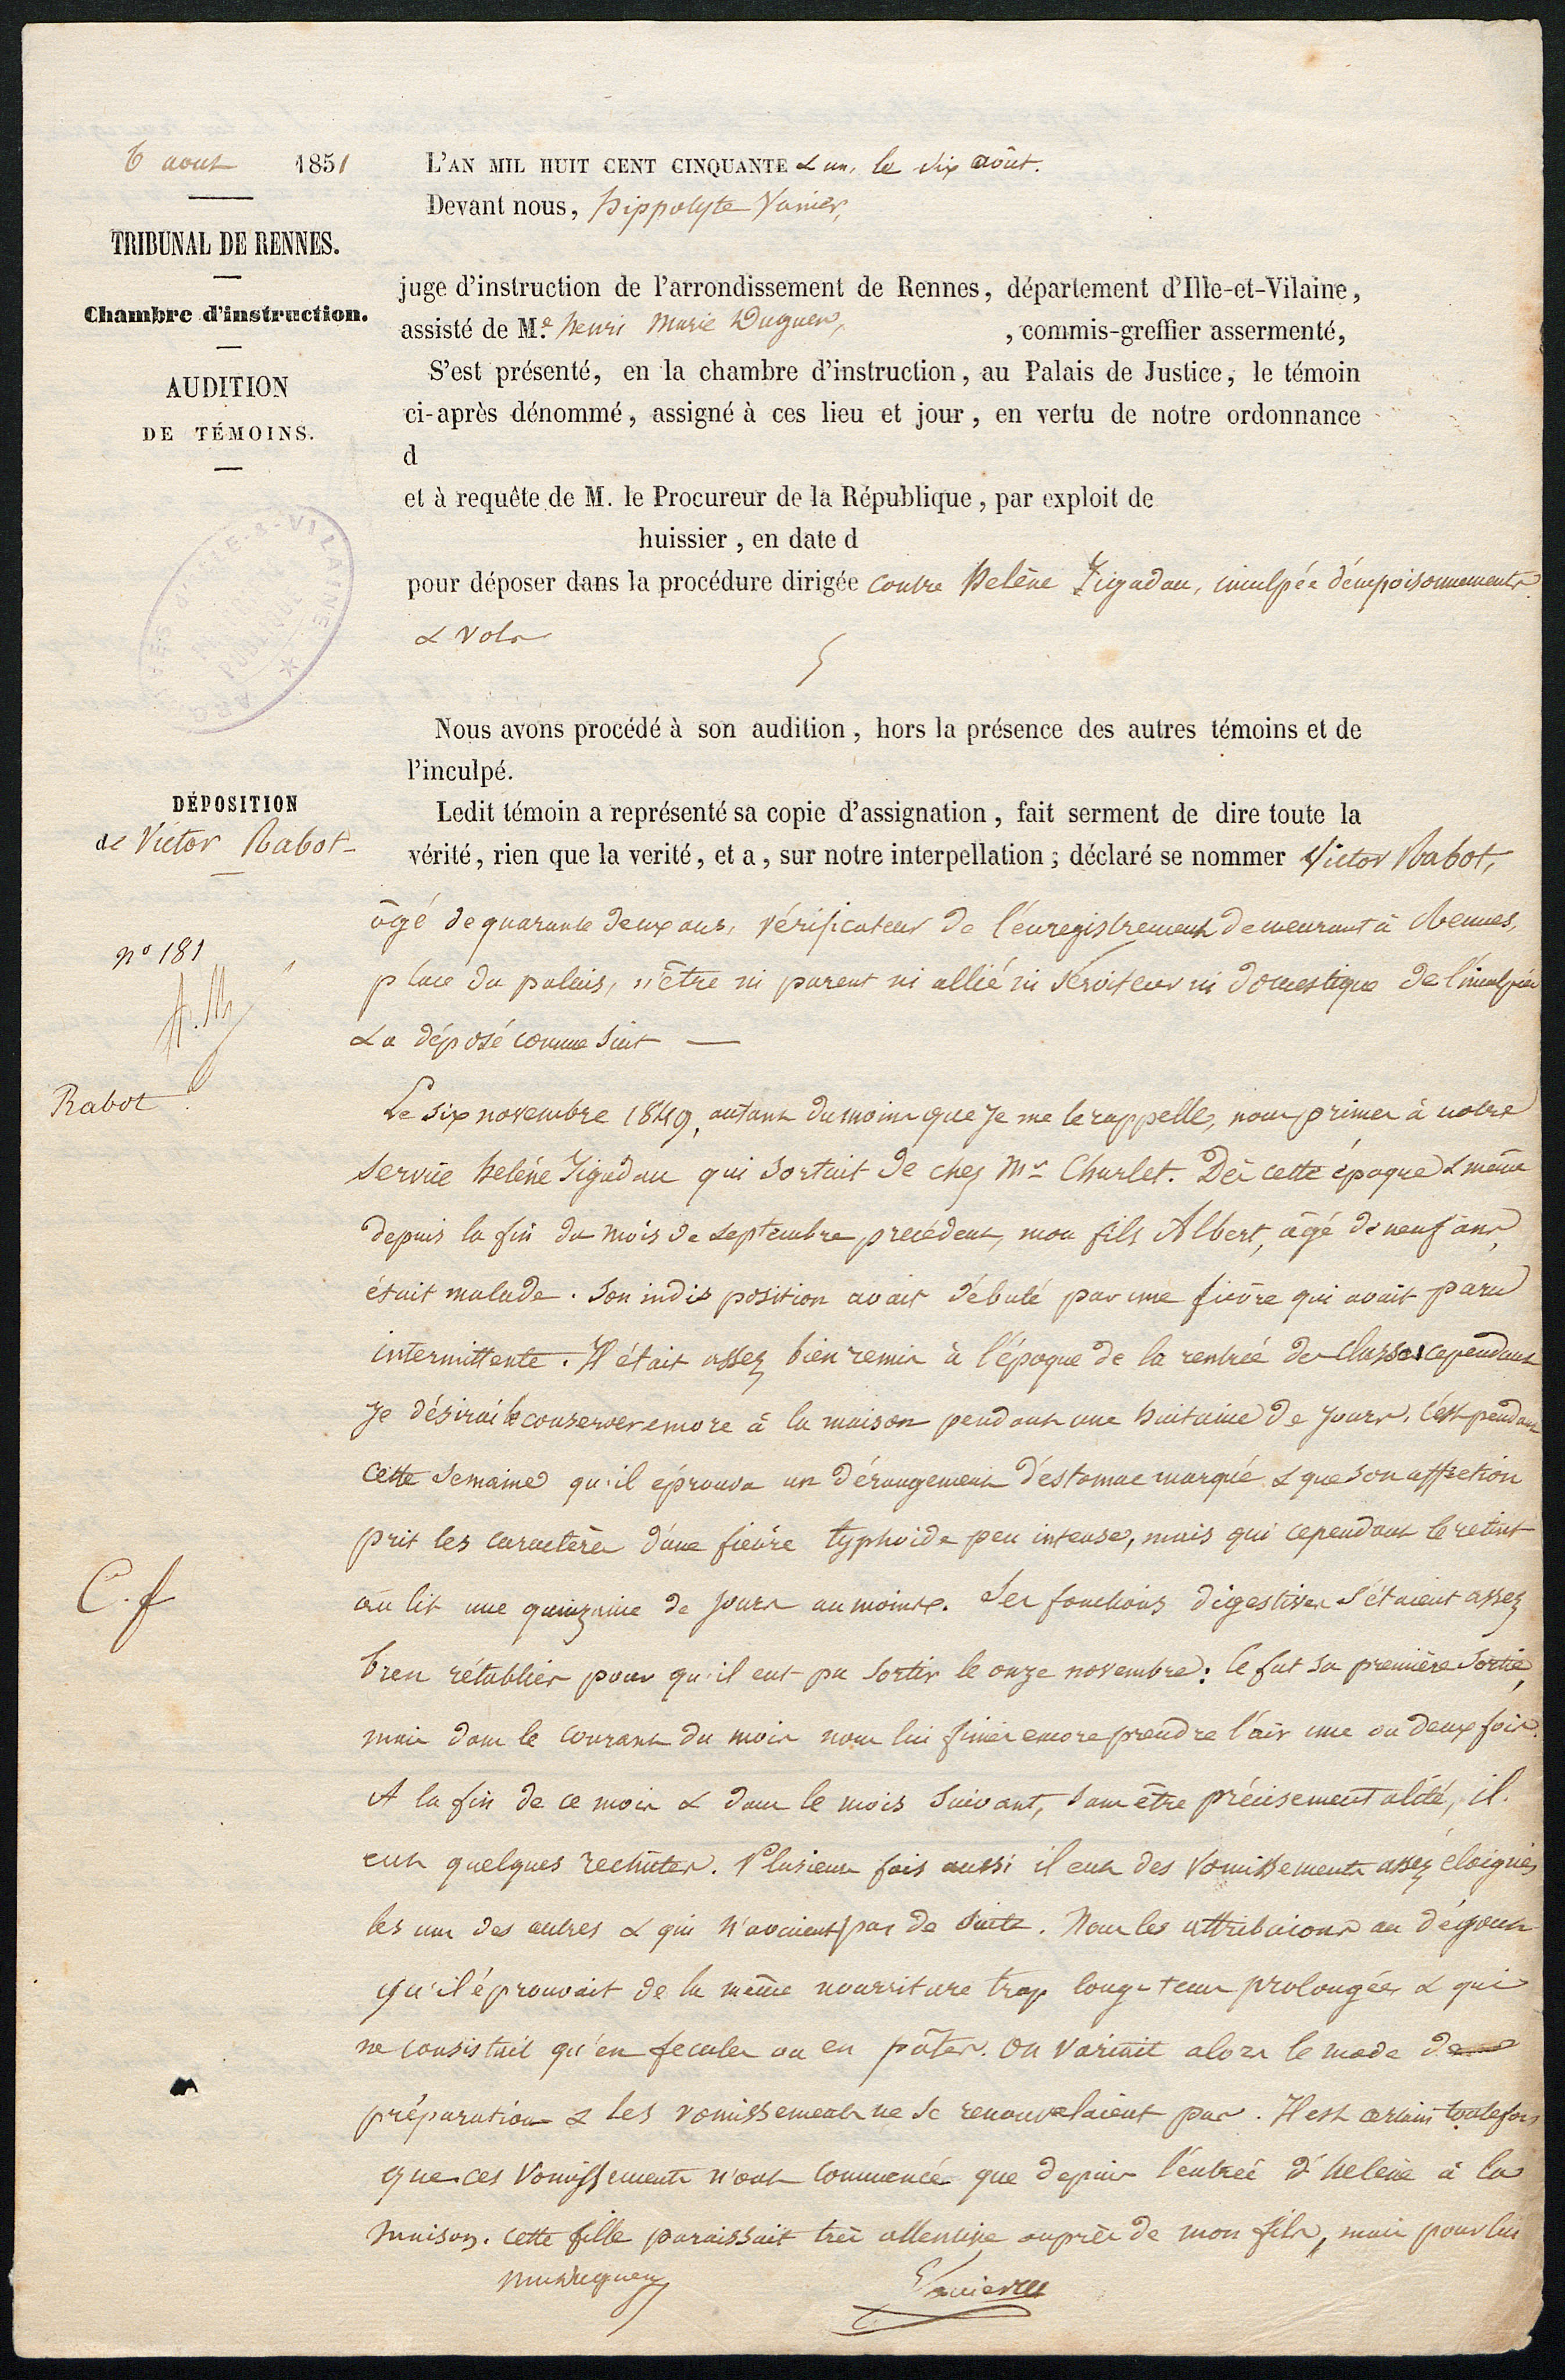 6 aout 1851
TRIBUNAL DE RENNES.
Chambre d'instruction.
AUDITION
DE TÉMOINS.
DÉPOSITION
de Victor Rabot
n° 181
Rabot
C. f
L'AN MIL HUIT CENT CINQUANTE & un, le six août.
Devant nous, hippolyte Vanier,
juge d'instruction de l'arrondissement de Rennes, département d'Ille-et-Vilaine,
assisté de Me henri Marie Duguen, , commis-greffier assermenté,
S'est présenté, en la chambre d'instruction, au Palais de Justice, le témoin
ci-après dénommé, assigné à ces lieu et jour, en vertu de notre ordonnance
d
et à requête de M. le Procureur de la République, par exploit de
huissier, en date d
pour déposer dans la procédure dirigée contre helène Jégadau, inculpée d'empoisonnements
& vols
Nous avons procédé à son audition, hors la présence des autres témoins et de
l'inculpé.
Ledit témoin a représenté sa copie d'assignation, fait serment de dire toute la
vérité, rien que la verité, et a, sur notre interpellation; déclaré se nommer Victor Rabot,
âgé de quarante deux ans, vérificateur de l'enregistrement demeurant à Rennes,
place du palais, n'être ni parent ni allié ni serviteur ni domestique de l'inculpée
& a déposé comme suit —
Le six novembre 1849, autant du moins que je me le rappelle, nous primes à notre
service helène Jégadau qui sortait de chez Mr Charlet. Dès cette époque & même
depuis la fin du mois de septembre precédent, mon fils Albert, âgé de neuf ans,
était malade. Son indisposition avait débuté par une fièvre qui avait paru
intermittente. Il était assez bien remis à l'époque de la rentrée des classes cependant
je désirai le conserver encore à la maison pendant une huitaine de jours. C'est pendant
cette semaine qu'il éprouva un dérangement d'estomac marqué & que son affection
prit les caractères d'une fièvre typhoïde peu intense, mais qui cependant le retint
au lit une quinzaine de jours au moins. Ses fonctions digestives s'étaient assez
bien rétablies pour qu'il eut pu sortir le onze novembre: ce fut sa première sortie,
mais dans le courant du mois nous lui fimes encore prendre l'air une ou deux fois.
A la fin de ce mois & dans le mois suivant, sans être précisement alité, il
eut quelques rechûtes. Plusieurs fois aussi il eut des vomissements assez eloignés
les uns des autres & qui n'avaient pas de suite. Nous les attribuions au dégout
qu'il éprouvait de la même nourriture trop long-tems prolongée & qui
ne consistait qu'en fecules ou en pâtes. On variait alors le mode de
préparation & les vomissements ne se renouvelaient pas. Il est certain toutefois
que ces vomissements n'ont commencé que depuis l'entrée d'helène à la
maison. cette fille paraissait très attentive auprès de mon fils, mais pour lui
Duguen
Vanier